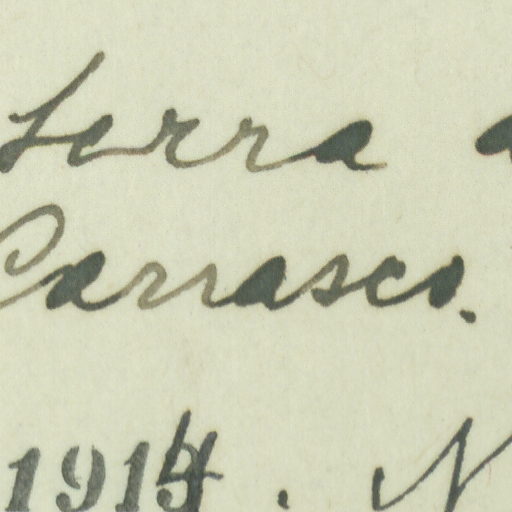 Serra
Carrasco.
1914. N